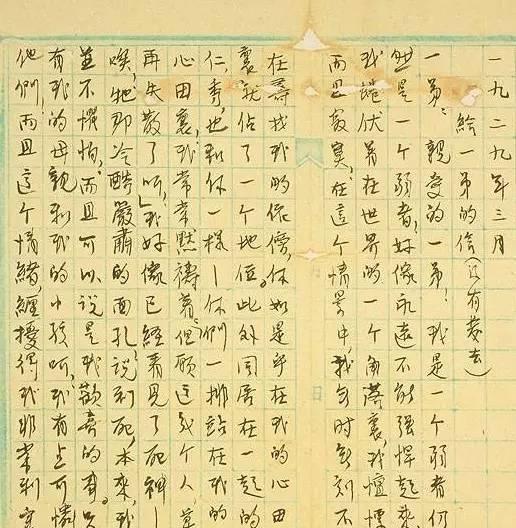 一九二九年三月
給一弟的信(没有发去)
一弟:親爱的一弟!我是一个弱者,
是一个弱者,好像永远不能强悍起来
我蜷伏着在世界的一个角落裏,我
而且寂寞,在這个情景中,我无时无刻不
在尋找我的你像,你如是乎在我的心田
裏就佔了一个地位。此外同居在一起的
仁,秀,也和你一樣—你們一排站在我的
心田裏,我常常默禱着:但願這幾个人莫
再失散了呀,我好像已經看見了死神—
唉,牠那冷酷嚴肅的面孔,说到死,本来,我
並不懼怕,而且可以说是我歡喜的事。只
有我的母親和我的小孩呵,我有点可憐
他們,而且這个情緒,纏擾得我非常利害